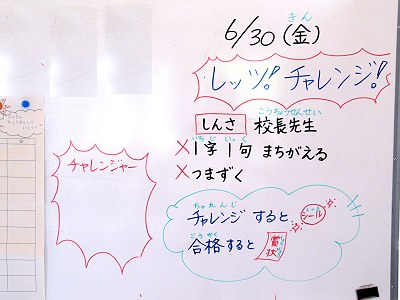 6/30(金)
きん
レッツ!チャレンジ!
しんさ 校長先生
こうちょうせんせい
×1字1句 まちがえる
いちじ いっく
×つまずく
チャレンジャー
チャレンジ すると シール
ちゃれんじ
合格すると 賞状
ごうかく